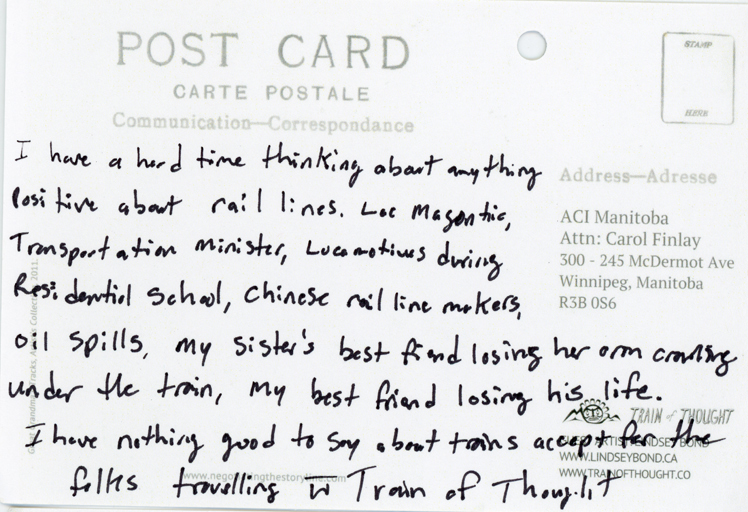 POST CARD
CARTE POSTALE
Communication—Correspondance
STAMP
HERE
I have a hard time thinking about anything
Positive about rail lines. Lac Magontic,
Transportation Minister, Locomotives during
Residential School, Chinese rail line makers,
oil spills, my sister's best fiend losing her arm crawling
under the train, my best friend losing his life.
I have nothing good to say about trains accept for the
folks travelling in Train of Thought
Address—Adresse
ACI Manitoba
Attn: Carol Finlay
300 - 245 McDermot Ave
Winnipeg, Manitoba
R3B 0S6
TRAIN of THOUGHT
WWW.LINDSEYBOND.CA
WWW.TRAINOFTHOUGHT.CO
2011.